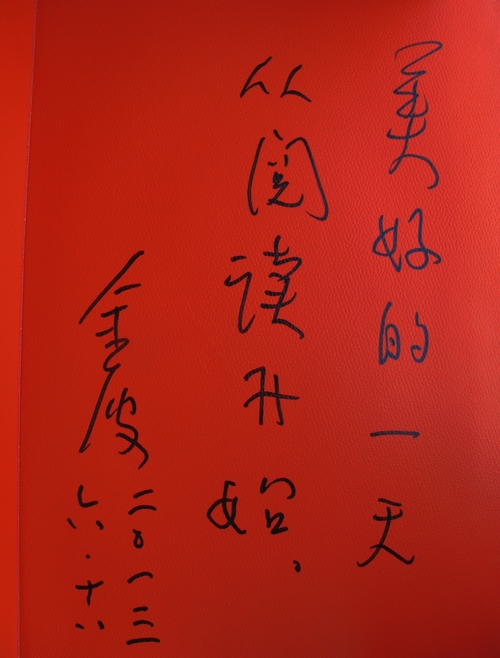 美好的一天
从阅读开始。
金波
二〇一三
六·十八